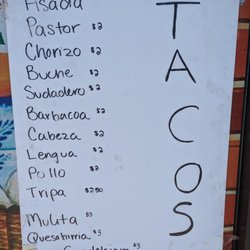 Asada
Pastor $2
Chorizo $2
Buche $2
Sudadero $2
Barbacoa $2
Cabeza $2
Lengua $2
Pollo $2
Tripa $2.50
Mulita $3
Quesabirria $3
$3
TACOS